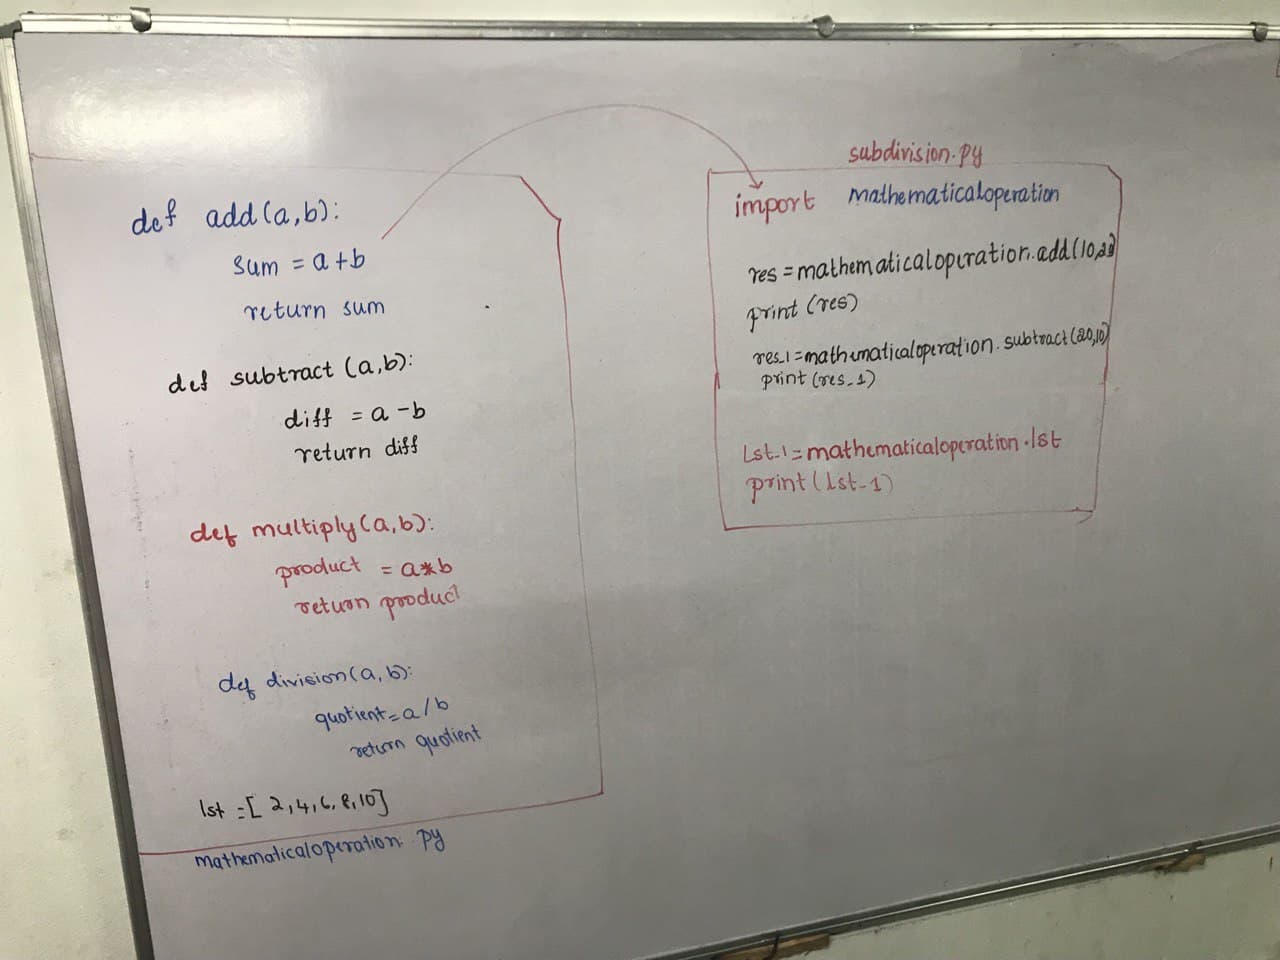 def add(a,b):
sum = a+b
return sum
def subtract (a,b):
diff = a-b
return diff
def multiply(a,b):
product = a*b
return product
def division(a,b):
quotient=a/b
return quotient
lst =[ 2,4,6,8,10]
mathematicaloperation. py
subdivision.py
import mathematicaloperation
res = mathematicaloperation.add(10,
print (res)
res_1=mathematicaloperation.subtract(20,10)
print (res_1)
Lst_1=mathematicaloperation.lst
print(lst_1)